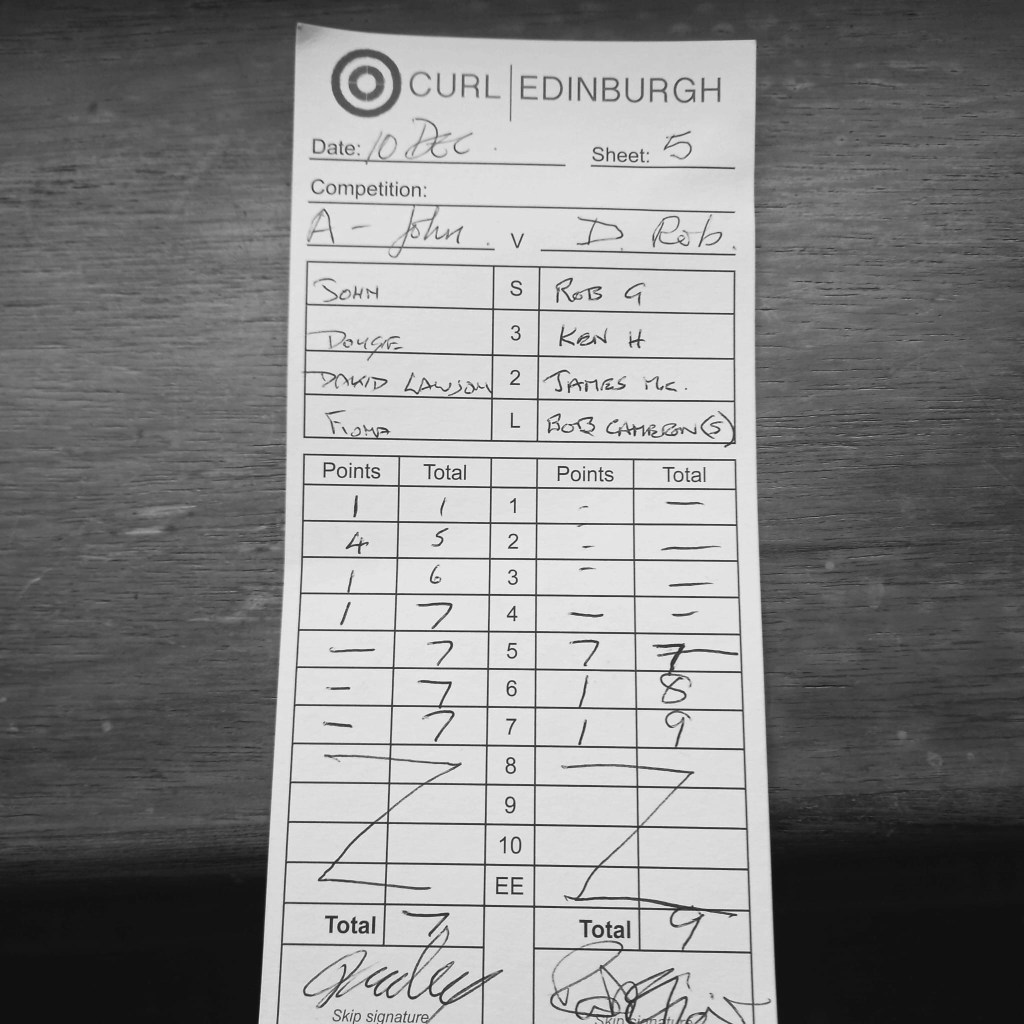 CURL | EDINBURGH
Date: 10 DEC. Sheet: 5
Competition:
A - John. v D. Rob.
JOHN S ROB G
DOUGIE 3 KEN H
DAVID LAWSON 2 JAMES Mc.
FIONA L BOB CAMERON (S)
Points Total Points Total
1 1 1 - —
4 5 2 - —
1 6 3 - —
1 7 4 — -
— 7 5 7 7
- 7 6 1 8
- 7 7 1 9
8
9
10
EE
Total 7 Total 9
Skip signature Skip signature